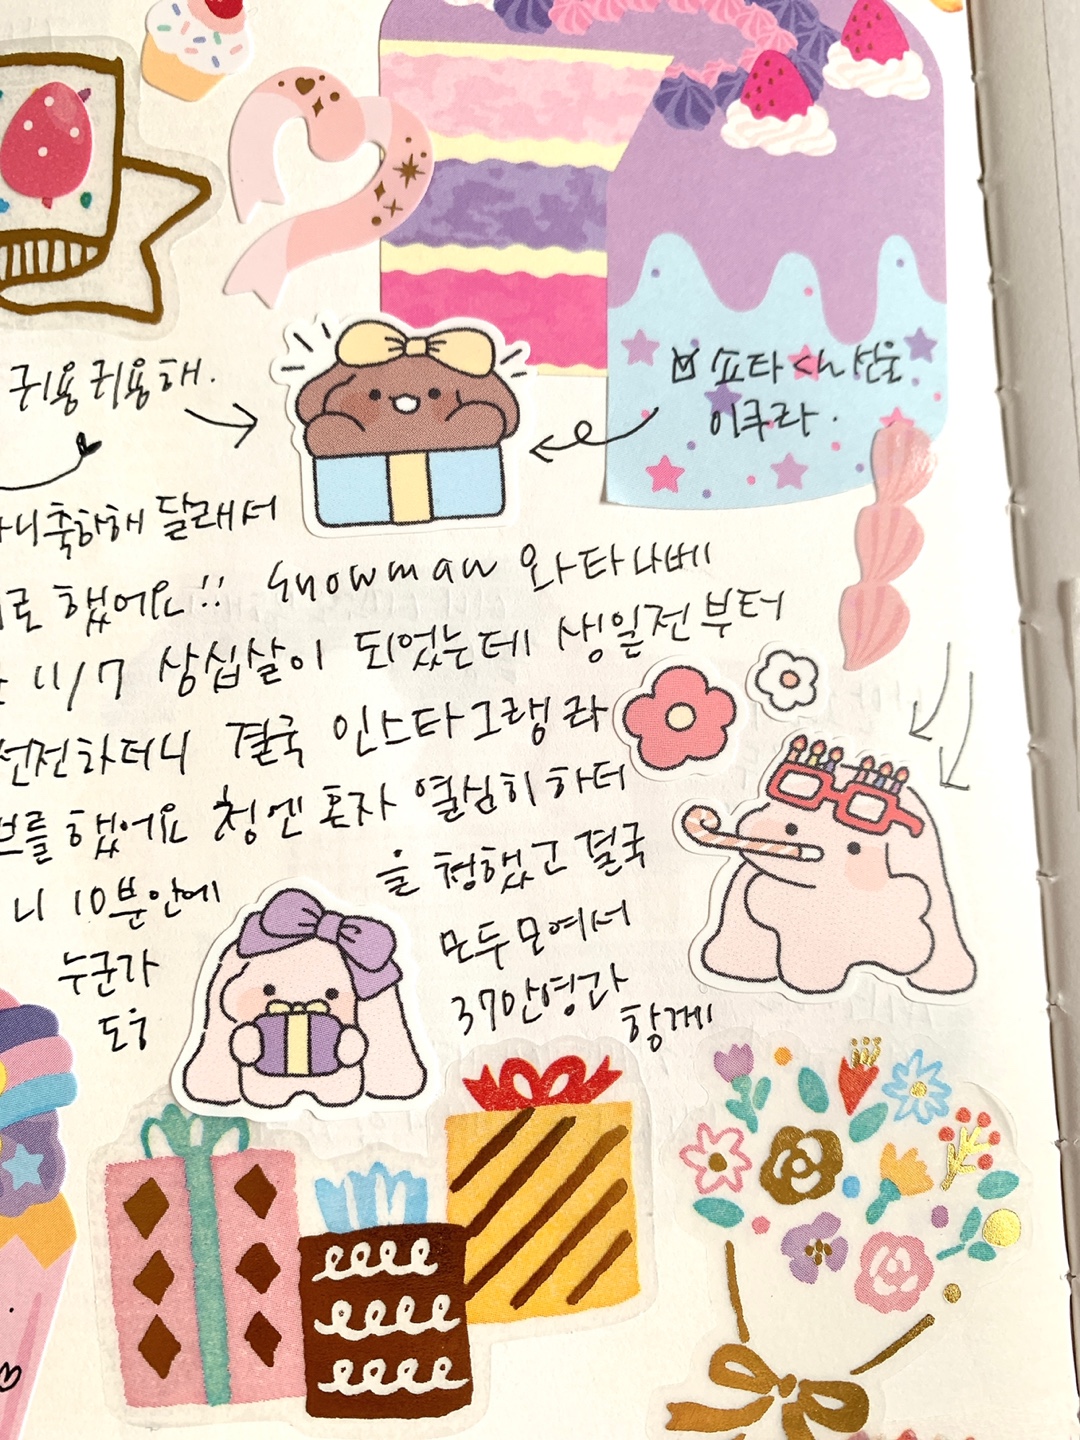 귀용귀용해.
쇼타くん 선물
이쿠라.
축하해 달래서
로 했어요!! snowman 와타나베
11/7 삼십살이 되었는데 생일전부터
선전하더니 결국 인스타그램 라
브를 했어요 첨엔 혼자 열심히 하더
니 10분안에
누군가
도우
을 청했고 결국
모두모여서
37만명과
함께